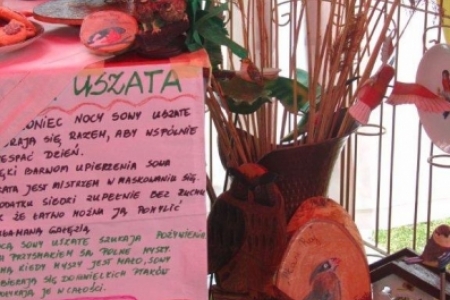 USZATA
ONIEC NOCY SOWY USZATE
RAJĄ SIĘ RAZEM, ABY WSPÓLNIE
ESPAĆ DZIEŃ.
ĘKI BARWOM UPIERZENIA SOWA
ATA JEST MISTRZEM W MASKOWANIU SIĘ.
DATKU SIEDZI ZUPEŁNIE BEZ RUCHU
K ŻE ŁATWO MOŻNA JĄ POMYLIĆ
ŁAMANĄ GAŁĘZIĄ.
CĄ SOWY USZATE SZUKAJĄ POŻYWIENIA
PRZYSMAKIEM SĄ POLNE MYSZY.
MĄ KIEDY MYSZY JEST MAŁO, SOWY
BIERAJĄ SIĘ DO PTAKÓW
YKAJĄ JE W CAŁOŚCI.